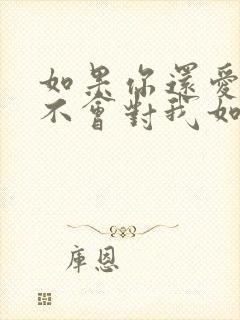 如果你還愛
不會對我如
庫恩